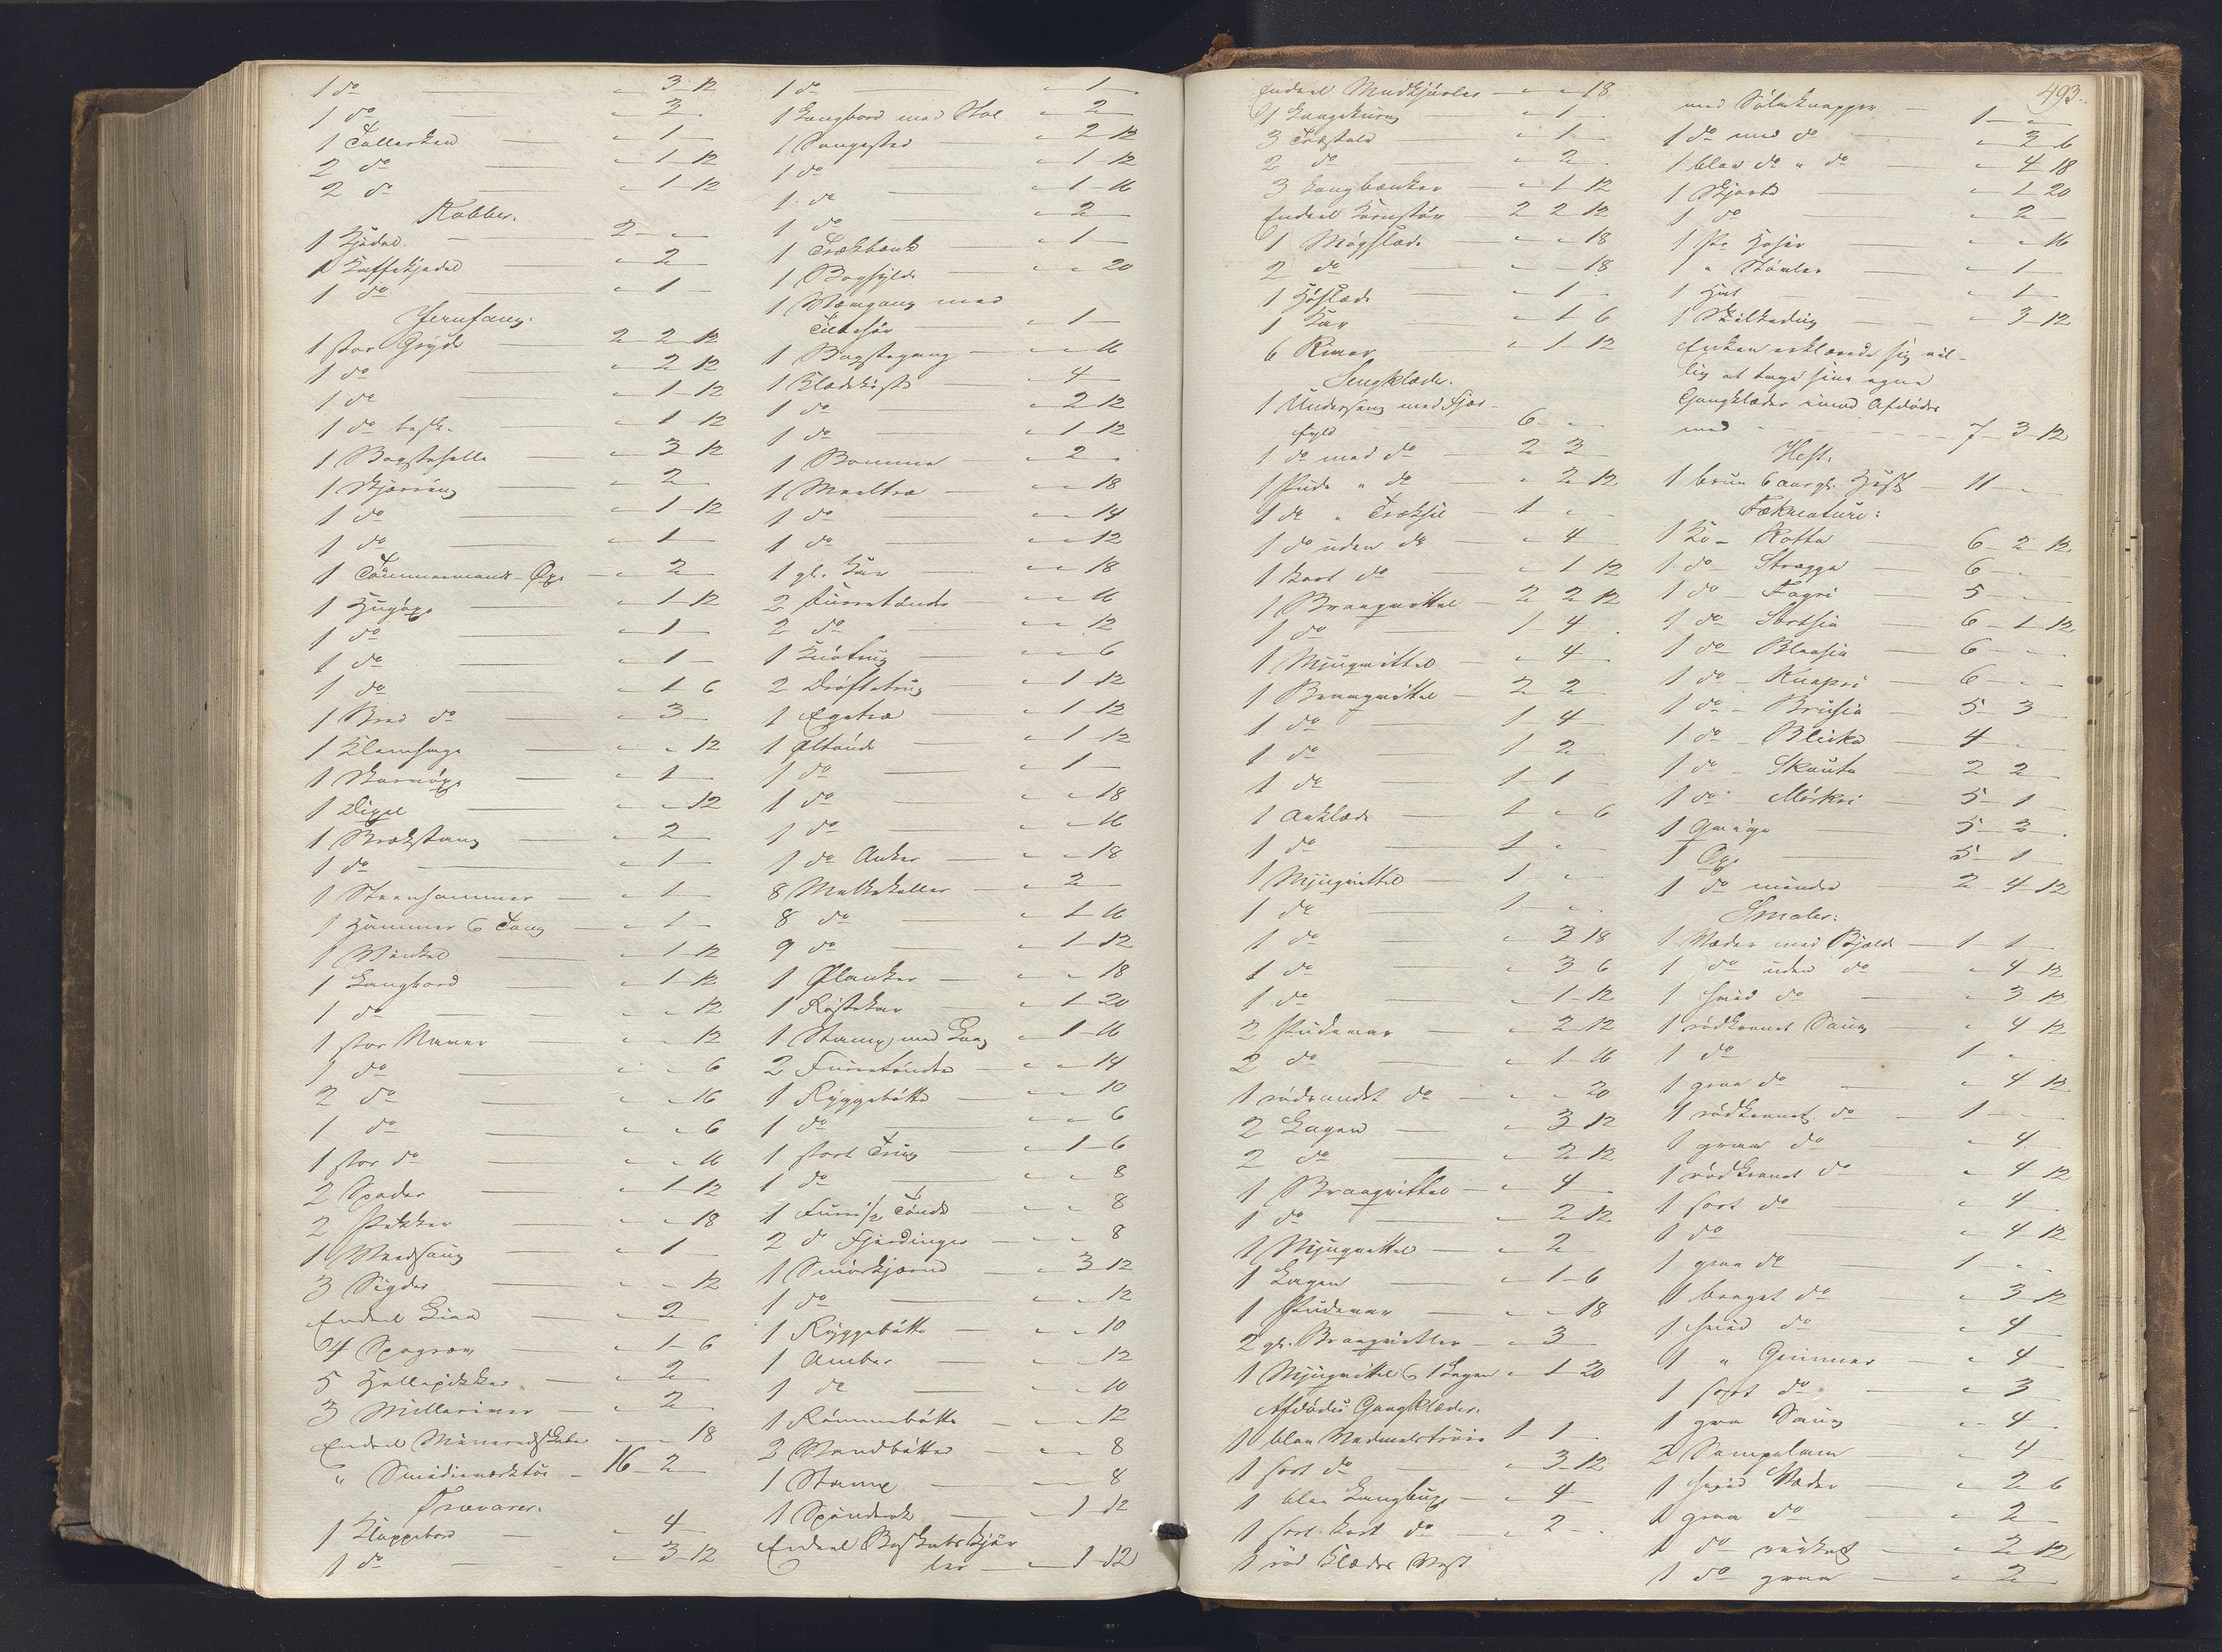 1 do - 3-12
1 do - 3 -
1 Tallerken - 1 -
2 do - 1-12
2 do - 1-12
Kobber.
1 Kjedel - 2 - -
1 Kaffekjedel - 2 -
1 do - 1 -
Jernfang.
1 stor Gryde 2 2 12
1 do - 2 12
1 do - 1-12
1 do besk. - 1-12
1 Bagstehelle - 3 12
1 - 2 -
1 do - 1-12
1 do - 1 -
1 Tømmermands-Øxe - 2 -
1 Hugøxe - 1-12
1 do - 1 -
1 do - 1 -
1 do - 1 6
1 Bred do - 3 -
1 - - 12
1 Skarøxe - 1 -
1 Dixel - - 12
1 Brækstang - 2 -
1 do - 1 -
1 Steenhammer - 1 -
1 Hammer & Tang - 1 -
1 Vinkel - 1-12
1 Langbord - 1-12
1 do - - 12
1 stor Naver - - 12
1 do - - 6
2 do - - 16
1 do - - 6
1 stor do - - 16
2 Spader - 1-12
2 Hakker - - 18
1 Vedsaug - 1 -
3 Sigder - - 12
Endeel Liaa - 2 -
4 - 1-6
5 - 2 -
3 - 2 -
Endeel - - 18
" Smedieværktøi - 16-2 -
Trævarer.
1 Klappebord - 4 -
1 do - 3-12
1 do - 1 -
1 Langbord med Stol - 2 -
1 Sengested - 2-12
1 do - 1-12
1 do - 1-16
1 do - 2 -
1 - 1 -
1 Boghylde - - 20
1 Vævgang med
Tilbehør - 1 -
1 - - 16
1 Klædekiste - 4 -
1 do - 2-12
1 do - 1-12
1 Bomme - 2 -
1 - - 18
1 do - - 14
1 do - - 12
1 gl. Kar - - 18
2 - - 16
2 do - - 12
1 - - 6
2 Drøftetrug - 1-12
1 - 1-12
1 Øltønde - 1-12
1 do - 1 -
1 do - - 18
1 do - - 16
1 do Anker - - 18
8 Melkekoller - 2 -
8 do - 1-16
9 do - 1-12
1 - - 18
1 - 1-20
1 Stamp med Laag - 1-16
2 - - 14
1 Ryggebøtte - - 10
1 do - - 6
1 stort Trug - 1-6
1 do - - 8
1 1/2 Tønde - - 8
2 do Fjerdinger - - 8
1 Smørkjærne - 3-12
1 do - - 12
1 Ryggebøtte - - 10
1 Ambar - - 12
1 do - - 10
1 Rømmebøtte - - 12
3 Vandbøtter - - 8
1 Stamp - - 8
1 Spinderok - 1 12
Endeel Boskabskjør
ler - 1-12
Endeel Madkjørler - - 18
1 - 1 -
3 - 1 -
2 do - 2 -
3 Langbænker - 1-12
Endeel Kornstør 2 2 12
1 Møgslæde - - 18
2 do - - 18
1 Høslæde - 1 -
1 Kar - 1 6
6 River - 1-12
Sengklæder.
1 Underseng med Fjær-
fyld 6 - -
1 do med do 2 3 -
1 Pude " do - 2-12
1 do " 1 - -
1 do uden do - 4 -
1 kort do - 1 12
1 Braaqvittel 2 2 12
1 do 1 4 -
1 Mjuqvittel - 4 -
1 Braaqvittel 2 2 -
1 do 1 4 -
1 do 1 2 -
1 do 1-1 -
1 Aaklæde 1 - 6
1 do 1 - -
1 Mjuqvittel 1 - -
1 do 1 - -
1 do - 3 18
1 do - 3 6
1 do - 1-12
2 Pudevar - 2 12
2 do - 1-16
1 rødrandet do - - 20
2 Lagen - 3-12
2 do - 2-12
1 Braaqvittel - 4 -
1 do - 2 12
1 Mjuqvittel - 2 -
1 Lagen - 1-6
1 Pudevar - - 18
2 gl. Braaqvitler - 3 -
1 Mjuqvittel & 1 Lagen - 1 20
Afdødes Gangklæder.
1 blaa Vadmelstrøie 1 1 -
1 sort do - 3-12
1 blaa Langbuxe - 4 -
1 sort kort do - 2 -
1 rød Klædes Vest
493.
med Sølvknapper 1 - -
1 do med do - 3 6
1 blaa do " do - 4 18
1 Skjorte - 1 20
1 do - 2 -
1 Pr. Hoser - - 16
1 " Støvler - 1 -
1 Hat - 1 -
1 - 3-12
Enken erklærede sig vil-
lig at tage sine egne
Gangklæder imod Afdødes
med 7-3-12
Hest.
1 brun 6 aar gl. Hest 11 - -
Fækreature:
1 Ko - Rotta 6-2-12
1 do - Stregga 6 - -
1 do - Fagri 5 - -
1 do - Sortsia 6-1-12
1 do - Blaasia 6 - -
1 do - Knapri 6 - -
1 do - Brusia 5 3 -
1 do - Blicka 4 - -
1 do - Skauta 2 2 -
1 do - Mørkri 5-1 -
1 Qvige 5-2 -
1 Oxe 5-1 -
1 do mindre 2-4-12
Smaler:
1 Væder med Bjelde 1 1 -
1 do uden do - 4 12
1 hvid do - 3 12
1 rødkronet Saug - 4 12
1 do 1 - -
1 graa do - 4 12
1 rødkronet do 1 - -
1 graa do - 4 -
1 rødkronet do - 4 12
1 sort do - 4 -
1 do - 4 12
1 graa do 1 - -
1 broget do - 3-12
1 hvid do - 4 -
1 " Gimmer - 4 -
1 sort do - 3 -
1 graa Saug - 4 -
2 - 4 -
1 hvid Væder - 2 6
1 graa do - 2 -
1 do - 2 12
1 do graa - 2 -